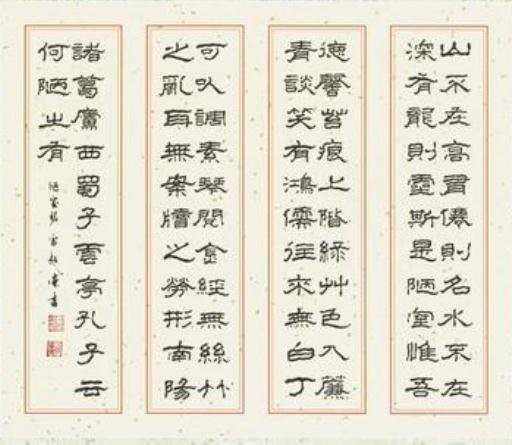 山不在高有僊則名水不在
深有龍則靈斯是陋室惟吾
德馨苔痕上階綠艸色入簾
青談笑有鴻儒往來無白丁
可以調素琴閱金經無絲竹
之亂耳無案牘之勞形南陽
諸葛廬西蜀子雲亭孔子云
何陋之有
陋室銘
書